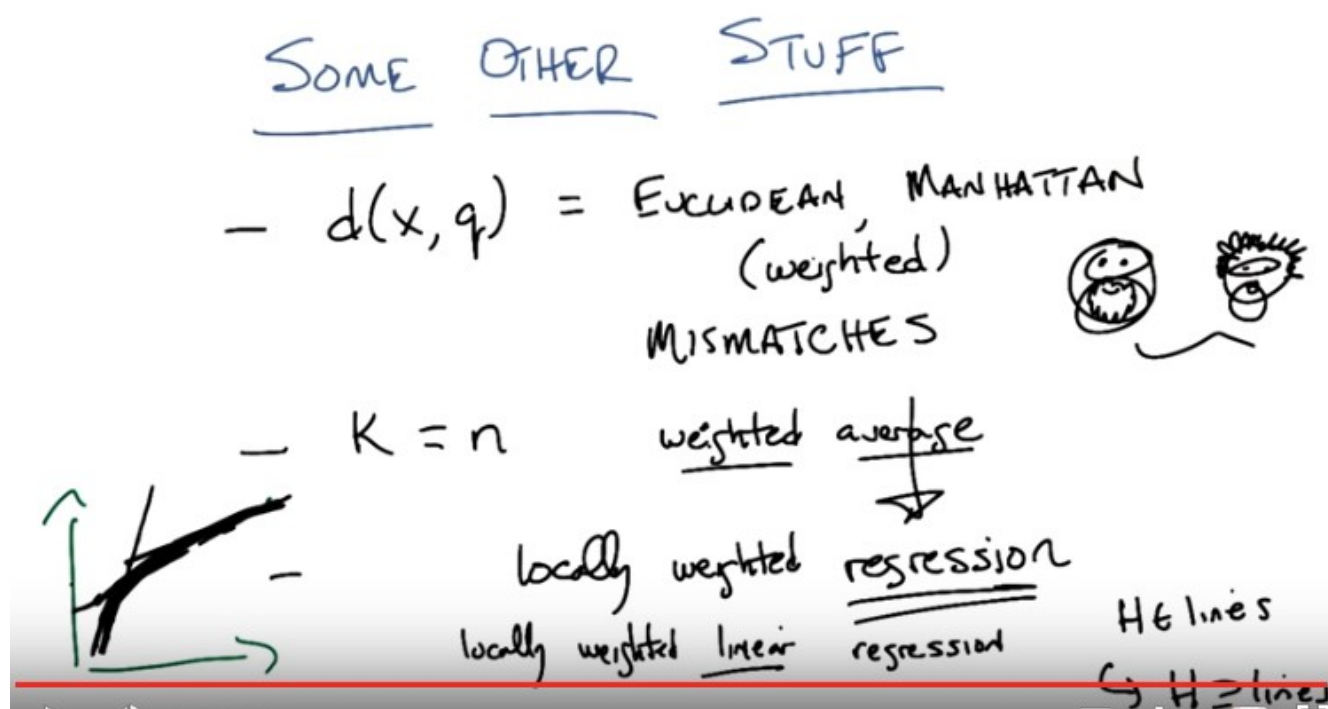 SOME OTHER STUFF
- d(x, q) = EUCLIDEAN, MANHATTAN
(weighted)
MISMATCHES
- K = n weighted average
- locally weighted regression
locally weighted linear regression
H ∈ lines
↳ H ⊇ lines